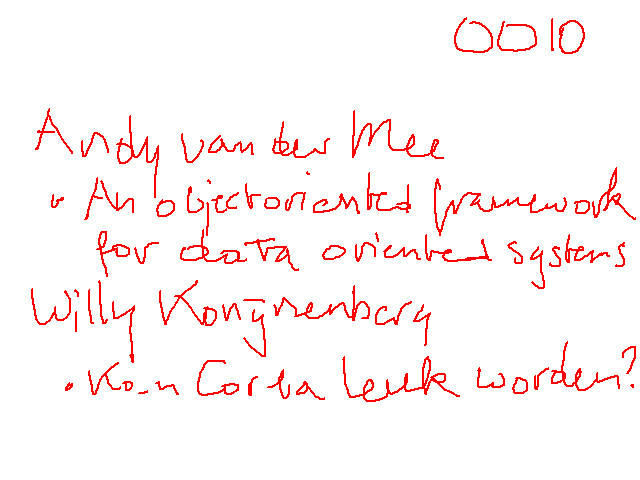 OO10
Andy van der Mee
• An objectoriented framework
for data oriented systems
Willy Konijnenberg
• Kan Corba leuk worden?